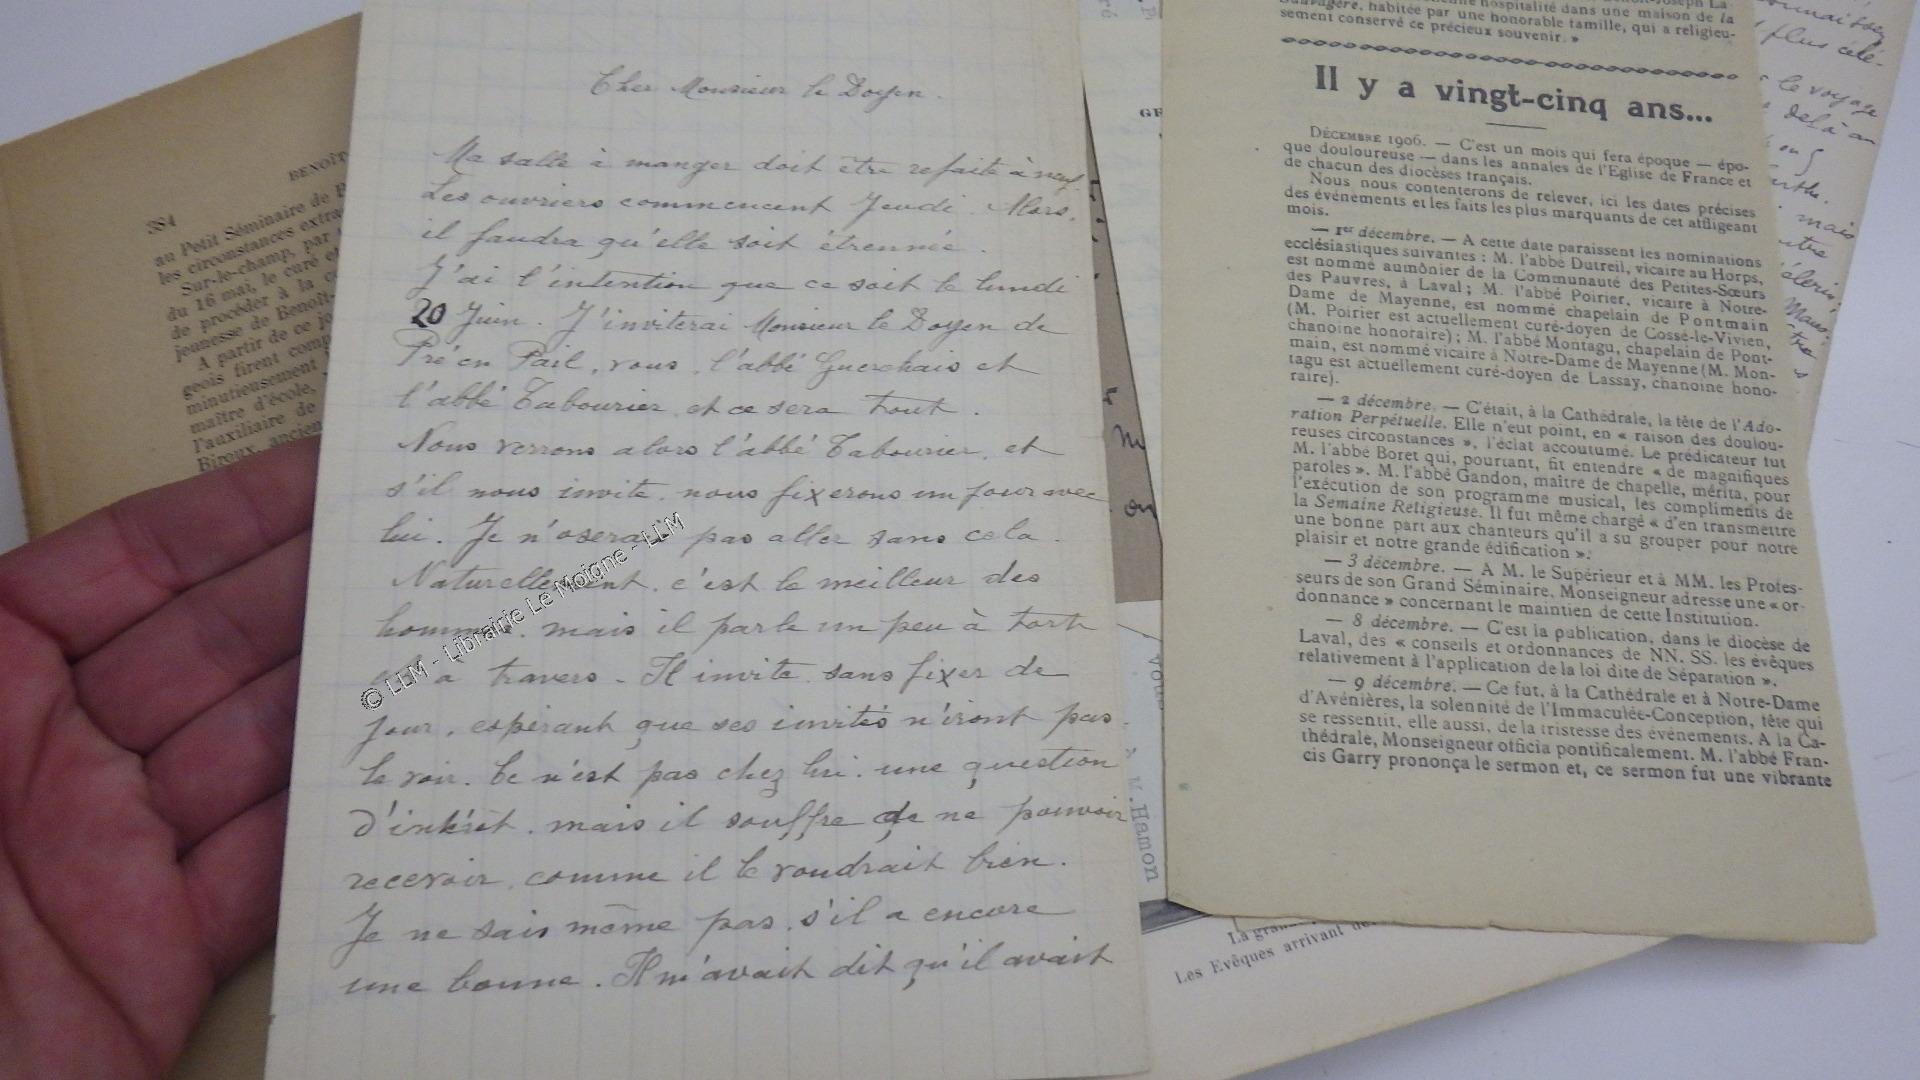 384
BENOÎT
au Petit Séminaire de
les circonstances extra
Sur-le-champ, par
du 16 mai, le curé et
de procéder à la
jeunesse de Benoît-
A partir de ce jo
geois firent comp
minutieusement
maître d'école,
l'auxiliaire de
Biroux, ancien
Cher Monsieur le Doyen.
Ma salle à manger doit être refaite à neuf.
Les ouvriers commencent Jeudi. Alors,
il faudra qu'elle soit étrennée.
J'ai l'intention que ce soit le lundi
20 Juin. J'inviterai Monsieur le Doyen de
Pré en Pail, vous, l'abbé Guerchais et
l'abbé Tabourier, et ce sera tout.
Nous verrons alors l'abbé Tabourier, et
s'il nous invite, nous fixerons un jour avec
lui. Je n'oserais pas aller sans cela.
Naturellement, c'est le meilleur des
hommes, mais il parle un peu à tort
et à travers - Il invite sans fixer de
jour, espérant que ses invités n'iront pas
le voir. Ce n'est pas chez lui, une question
d'intérêt, mais il souffre de ne pouvoir
recevoir, comme il le voudrait bien.
Je ne sais même pas, s'il a encore
une bonne. Il m'avait dit qu'il avait
© LLM - Librairie Le Moigne - LLM
M. Hamon
La gran
Les Evêques arrivant de
hospitalité dans une maison de la
Sauvagère, habitée par une honorable famille, qui a religieu-
sement conservé ce précieux souvenir. »
Il y a vingt-cinq ans...
DÉCEMBRE 1906. — C'est un mois qui fera époque — épo-
que douloureuse — dans les annales de l'Eglise de France et
de chacun des diocèses français.
Nous nous contenterons de relever, ici les dates précises
des événements et les faits les plus marquants de cet affligeant
mois.
— 1er décembre. — A cette date paraissent les nominations
ecclésiastiques suivantes : M. l'abbé Dutreil, vicaire au Horps,
est nommé aumônier de la Communauté des Petites-Sœurs
des Pauvres, à Laval ; M. l'abbé Poirier, vicaire à Notre-
Dame de Mayenne, est nommé chapelain de Pontmain
(M. Poirier est actuellement curé-doyen de Cossé-le-Vivien,
chanoine honoraire) ; M. l'abbé Montagu, chapelain de Pont-
main, est nommé vicaire à Notre-Dame de Mayenne (M. Mon-
tagu est actuellement curé-doyen de Lassay, chanoine hono-
raire).
— 2 décembre. — C'était, à la Cathédrale, la fête de l'Ado-
ration Perpétuelle. Elle n'eut point, en « raison des doulou-
reuses circonstances », l'éclat accoutumé. Le prédicateur fut
M. l'abbé Boret qui, pourtant, fit entendre « de magnifiques
paroles ». M. l'abbé Gandon, maître de chapelle, mérita, pour
l'exécution de son programme musical, les compliments de
la Semaine Religieuse. Il fut même chargé « d'en transmettre
une bonne part aux chanteurs qu'il a su grouper pour notre
plaisir et notre grande édification ».
— 3 décembre. — A M. le Supérieur et à MM. les Profes-
seurs de son Grand Séminaire, Monseigneur adresse une « or-
donnance » concernant le maintien de cette Institution.
— 8 décembre. — C'est la publication, dans le diocèse de
Laval, des « conseils et ordonnances de NN. SS. les évêques
relativement à l'application de la loi dite de Séparation ».
— 9 décembre. — Ce fut, à la Cathédrale et à Notre-Dame
d'Avénières, la solennité de l'Immaculée-Conception, fête qui
se ressentit, elle aussi, de la tristesse des événements. A la Ca-
thédrale, Monseigneur officia pontificalement. M. l'abbé Fran-
cis Garry prononça le sermon et, ce sermon fut une vibrante
plus célè-
le voyage
delà au
mais